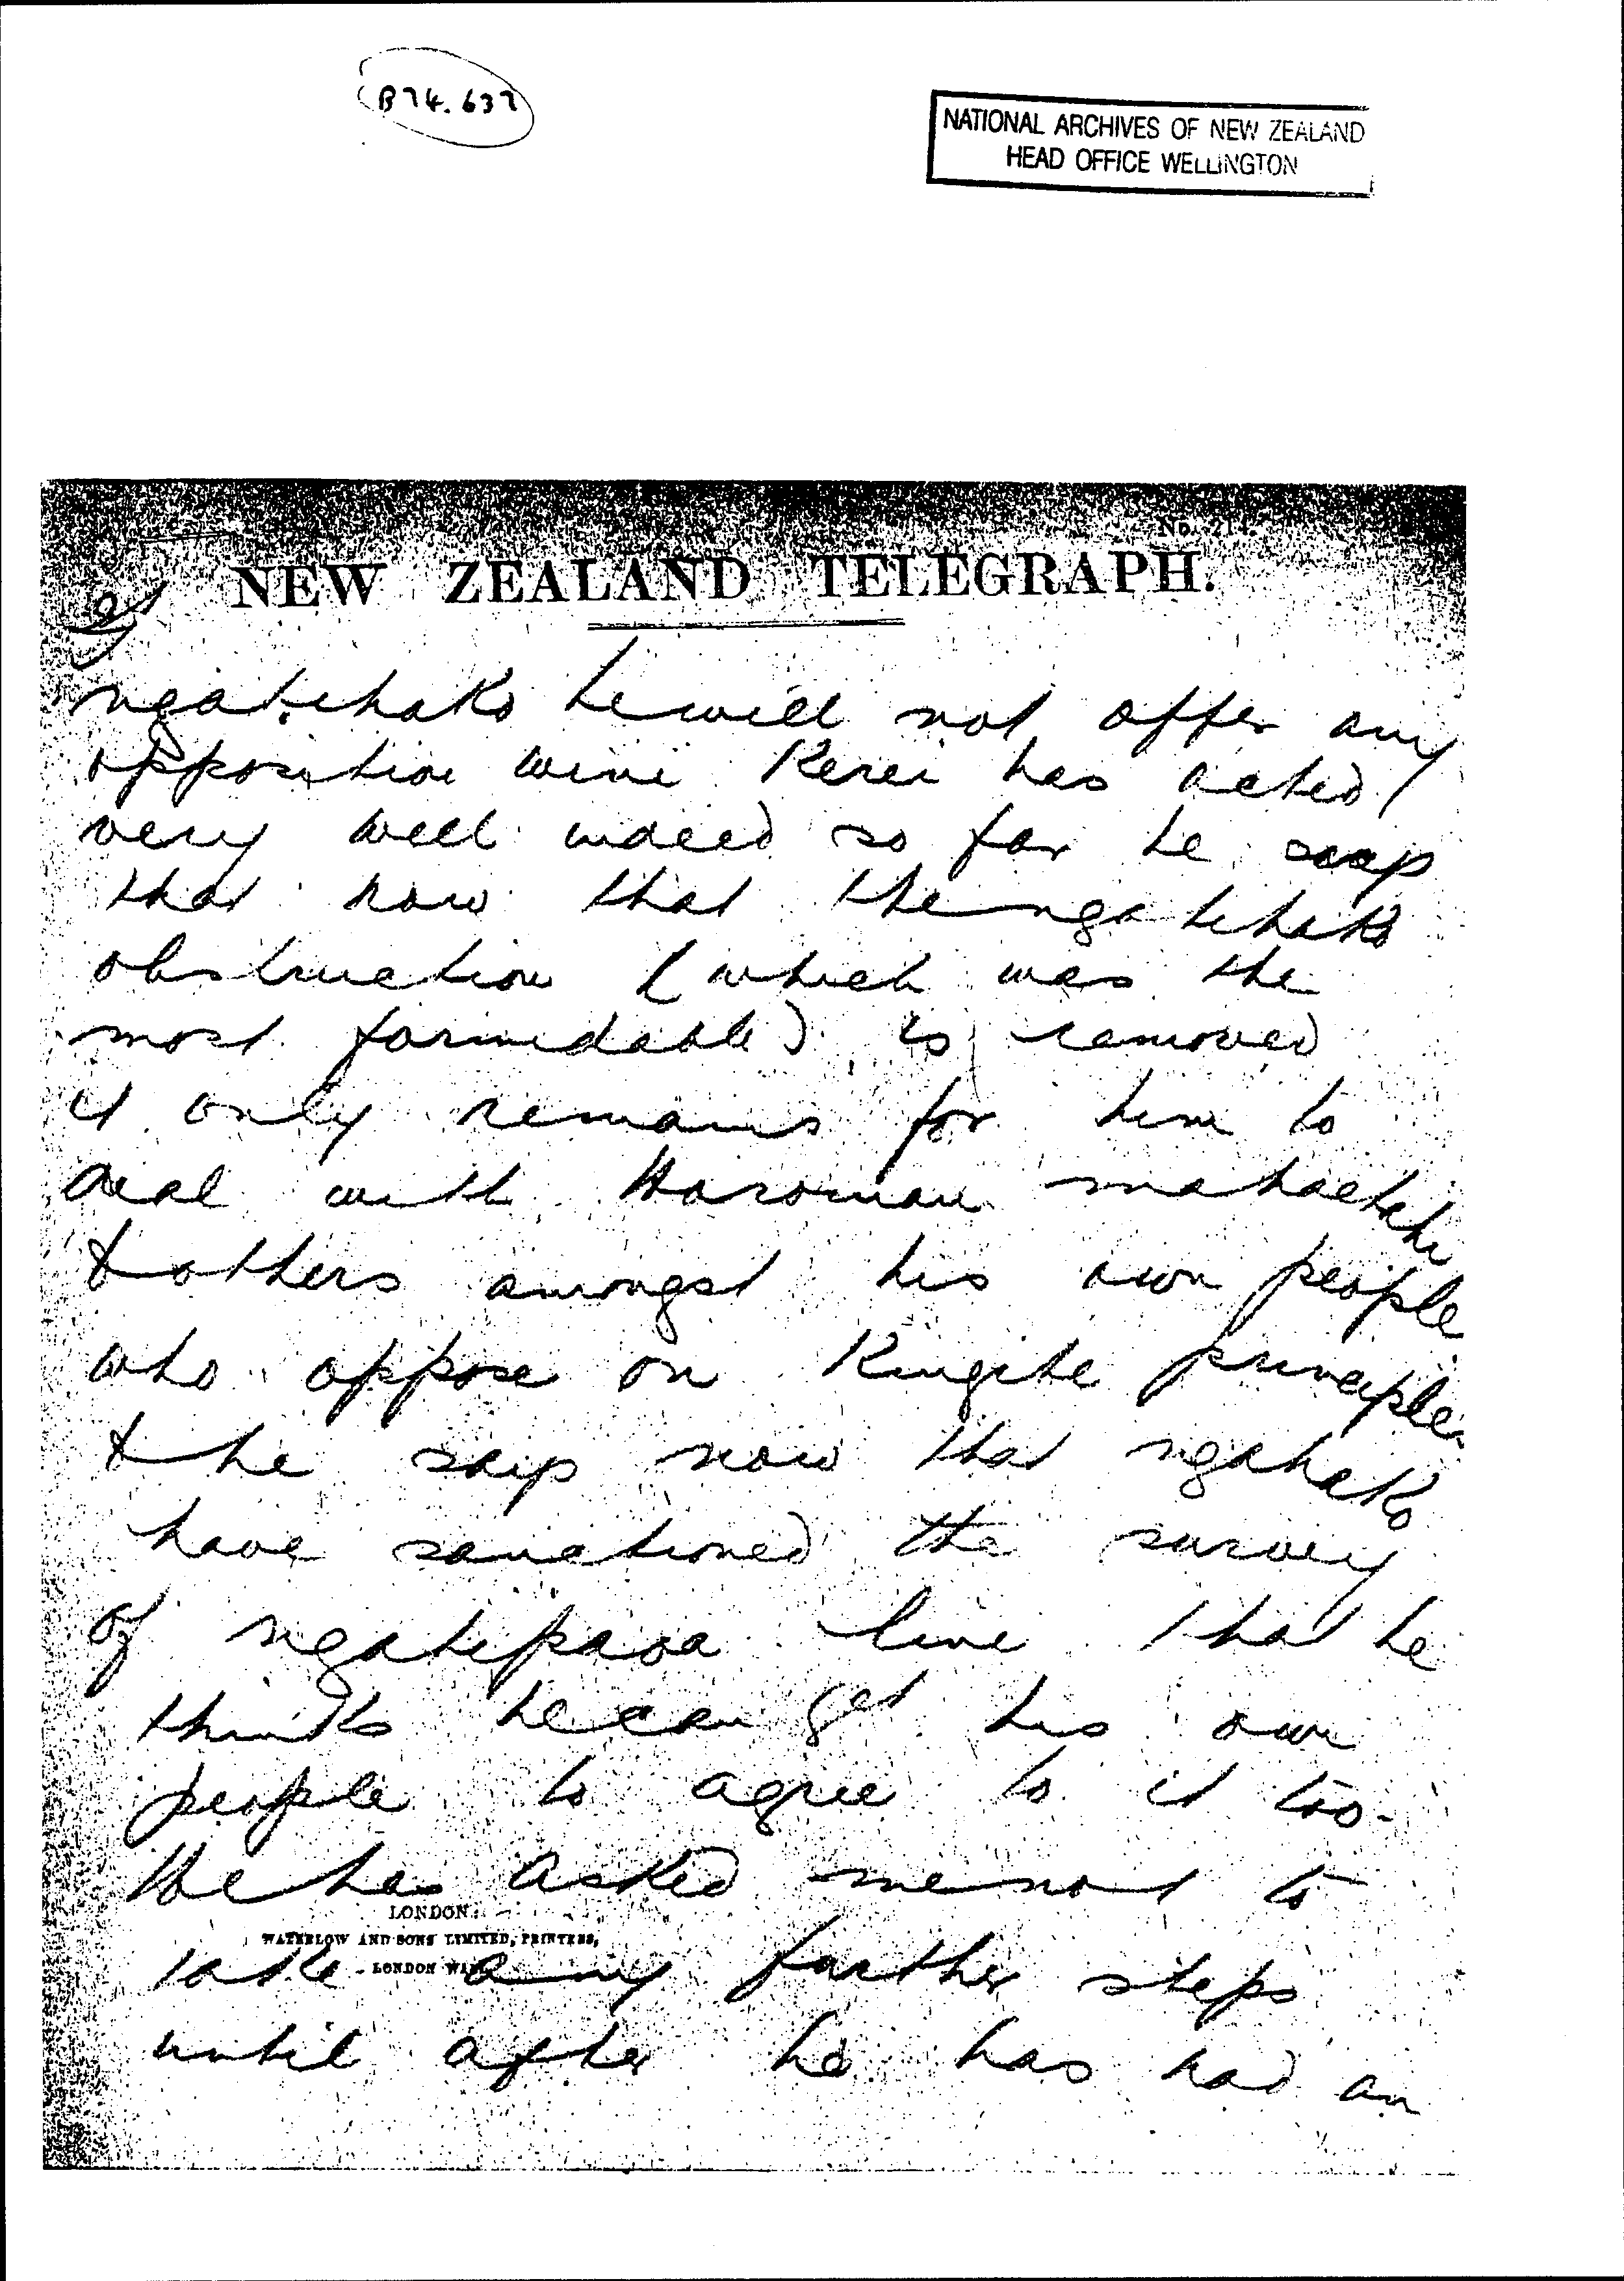 B74.637
NATIONAL ARCHIVES OF NEW ZEALAND
HEAD OFFICE WELLINGTON
NEW ZEALAND TELEGRAPH.
ngatihako he will not offer any
opposition wini Kerei has acted
very well indeed so far he says
that now that the ngatihako
obstruction (which was the
most formidable) is removed
it only remains for him to
deal with Haromau mahaetahi
& others amongst his own people
who oppose on Kingite principles
& he says now that ngahako
have sanctioned the survey
of ngatipaoa line that he
thinks he can get his own
people to agree to it too-
He has asked me not to
LONDON
WATERLOW AND SONS LIMITED, PRINTERS,
LONDON WALL
take any further steps
until after he has had an